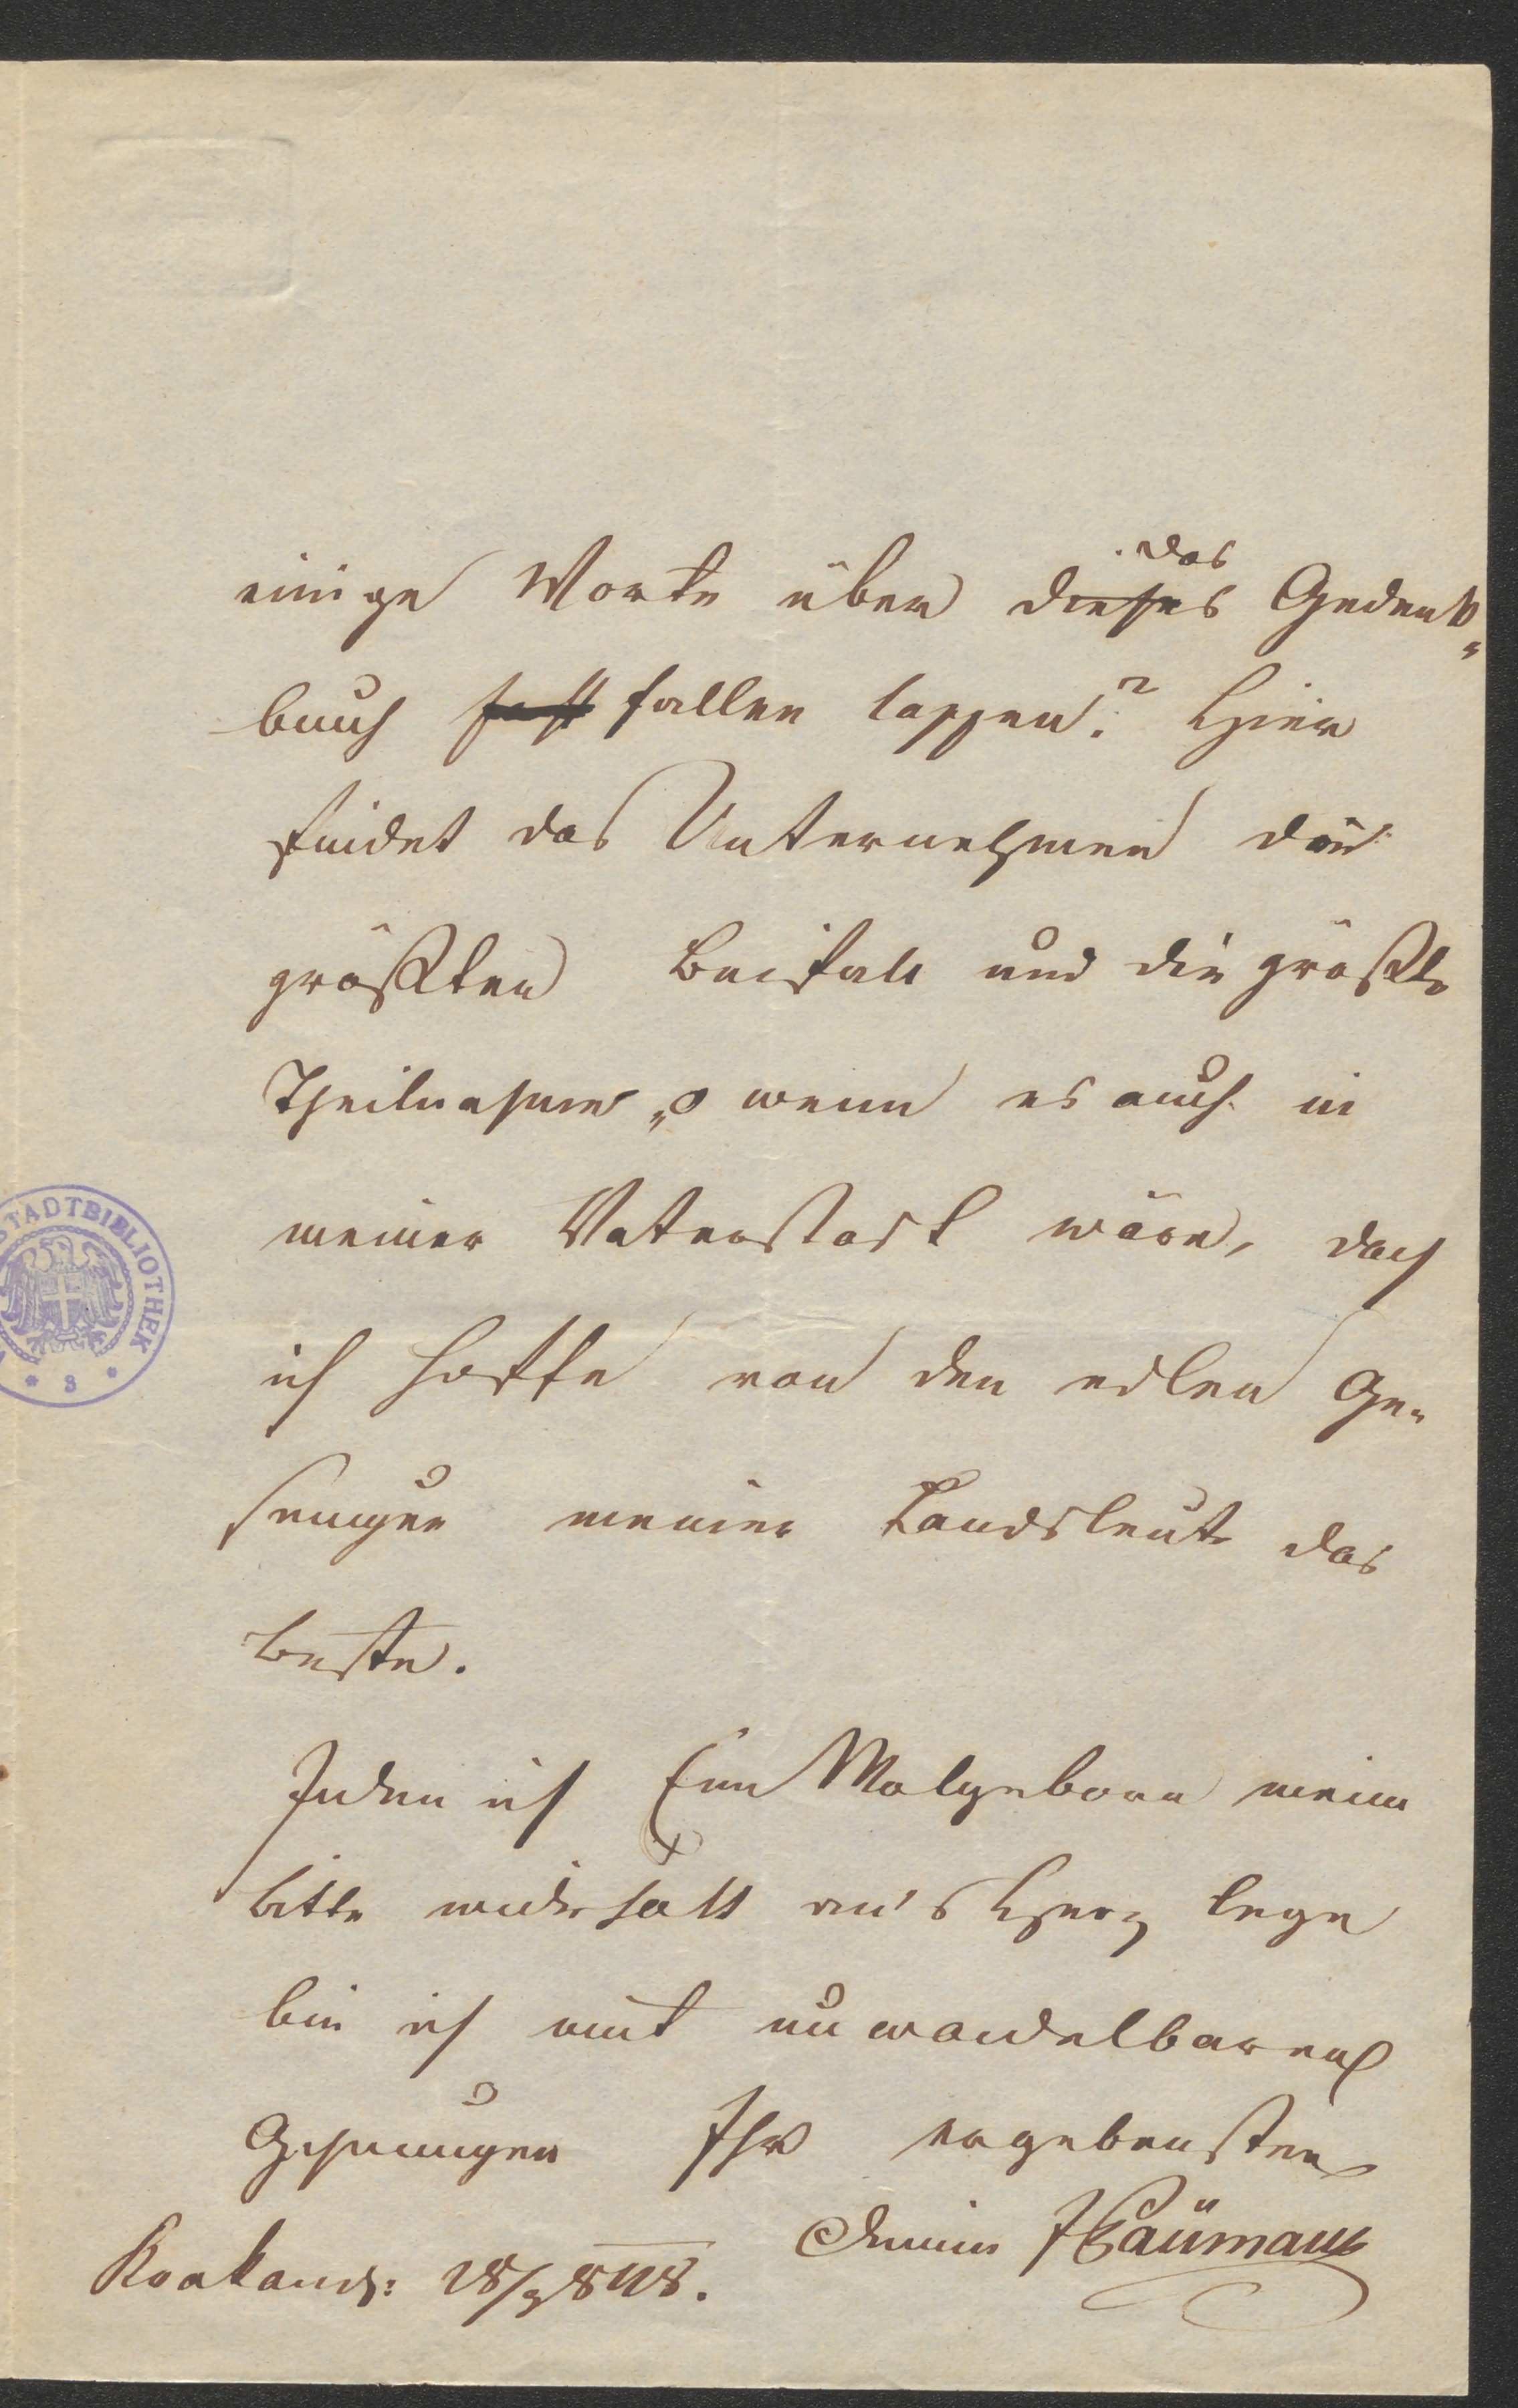 einige Worte über dieses das Gedenk-
buch fallen lassen? Hier
findet das Unternehmen den
größten Beifall und die größte
Theilnahme, o wenn es auch in
meiner Vaterstadt wäre, doch
ich hoffe von den edlen Ge-
sinnungen meiner Landsleute das
beste.
Indem ich Euer Wolgeboren meine
bitte wiederholt an's Herz lege
bin ich mit unwandelbaren
Gesinnungen Ihr ergebenster
STADTBIBLIOTHEK
* 3 *